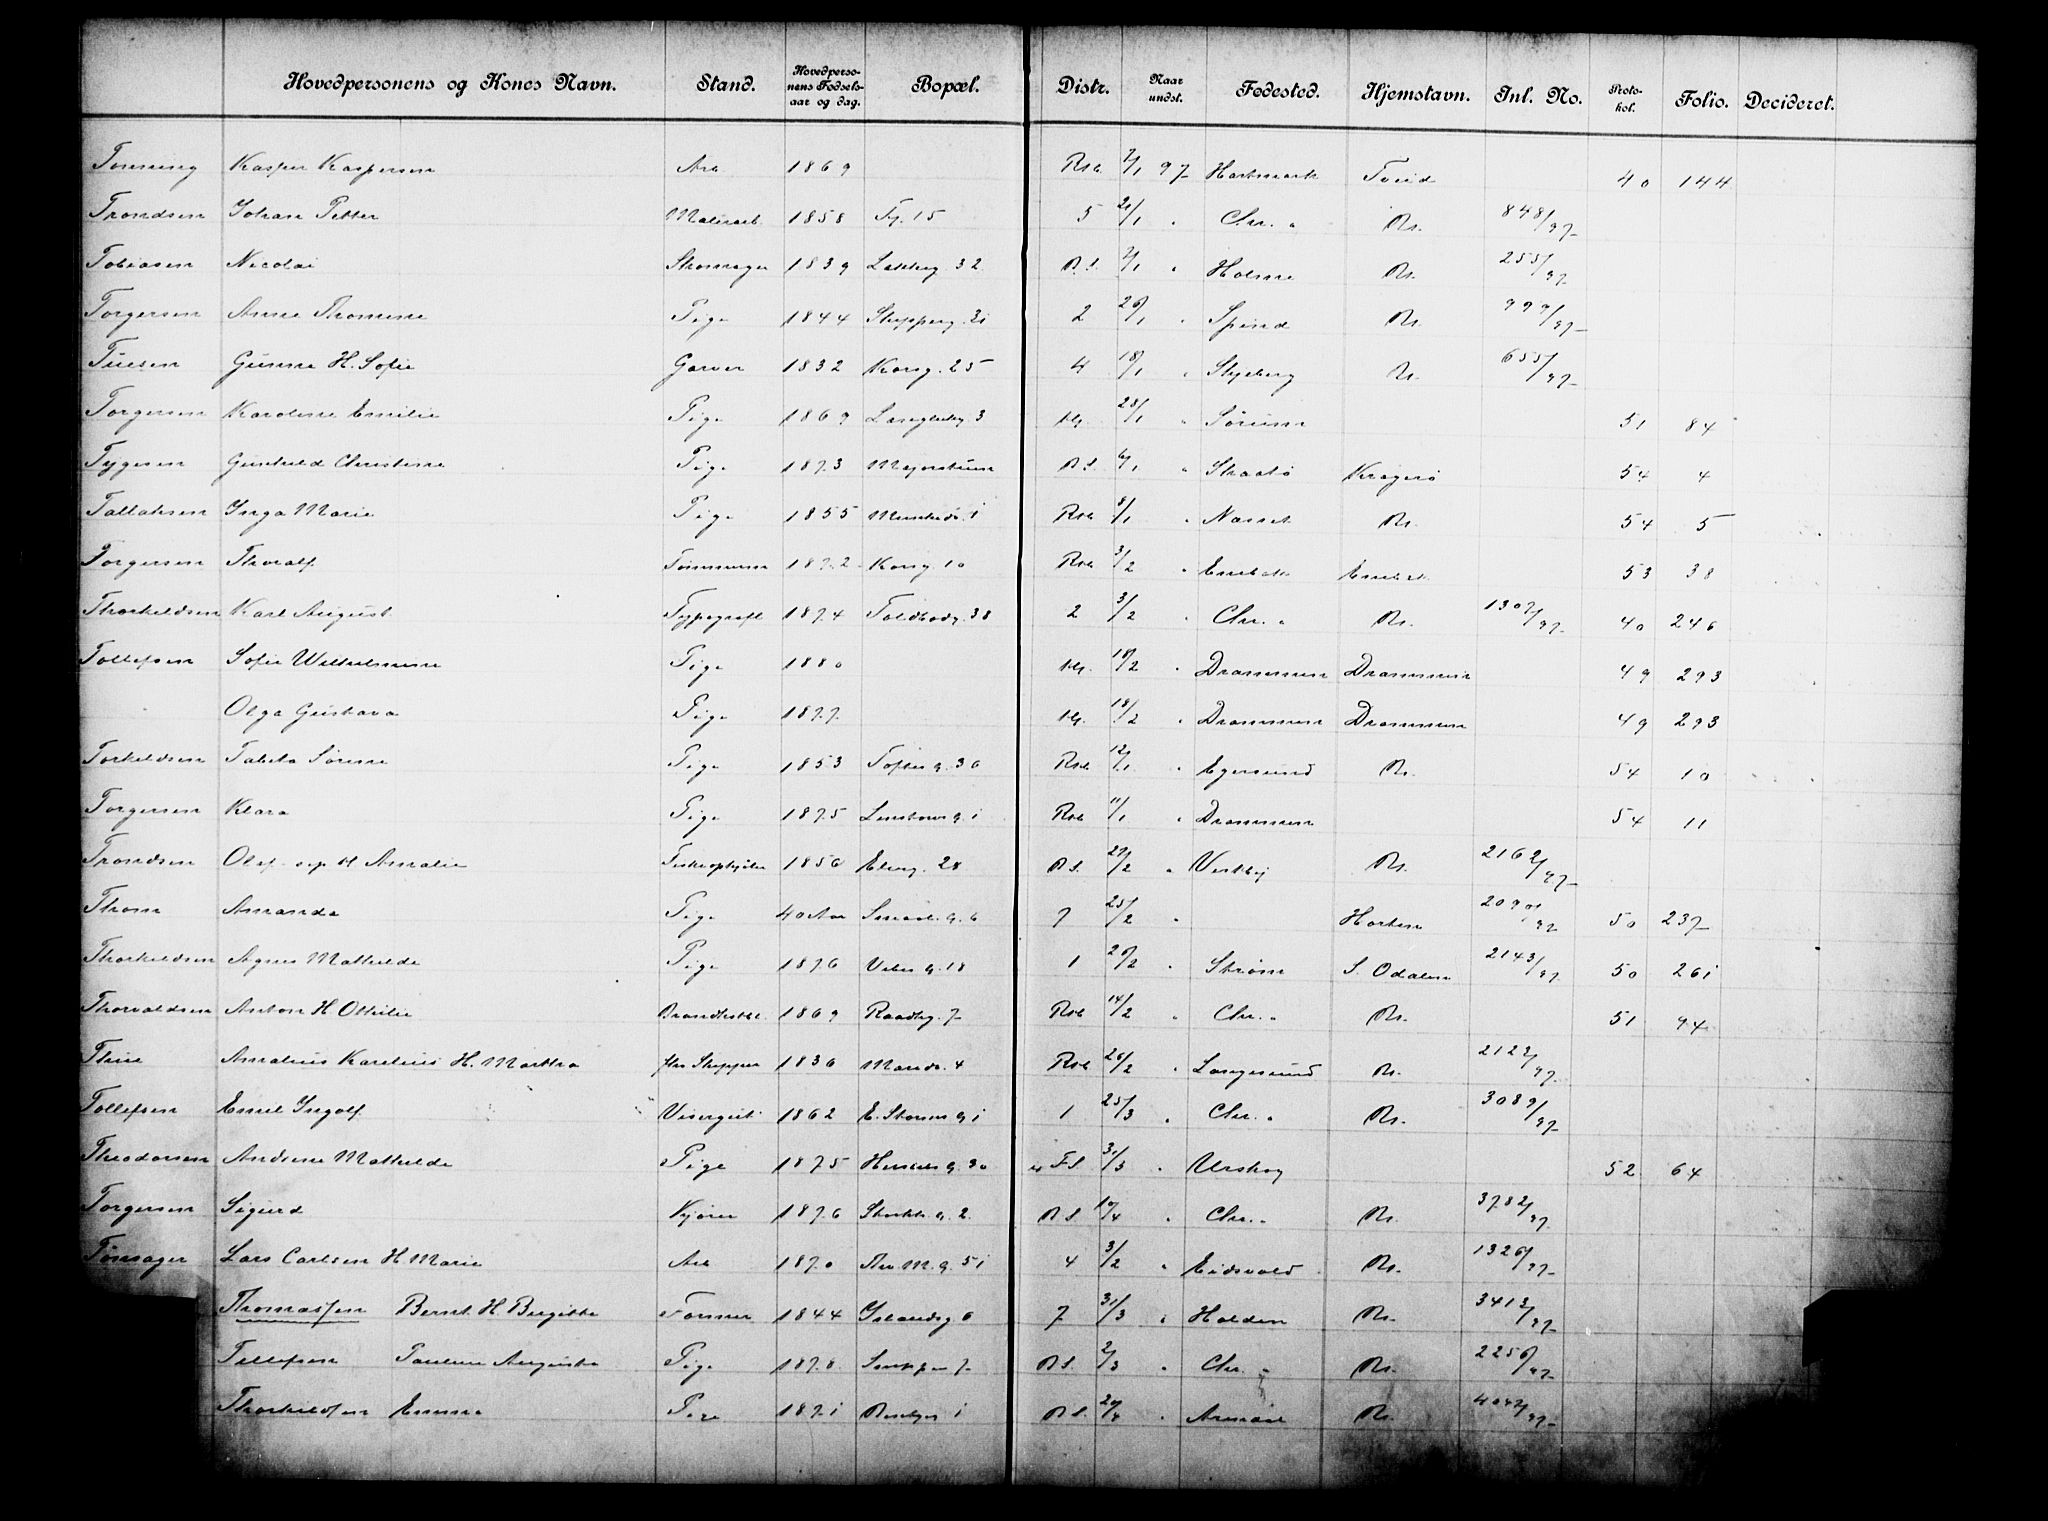 Hovedpersonens og Kones Navn. Stand. Hovedpersonens Fødselsaar og dag. Bopæl. Distr. Naar undst. Fødested. Hjemstavn. Inl. No. Protokol. Folio. Decideret.
Tønning Kasper Kaspersen Arb 1869 Rsb 7/1 97 Tveid 40 144
Trondsen Johan Petter Malerarb. 1858 Tg. 15 5 21/1 " Chr. " Rs. 848/97
Tobiasen Nicolai Skomager 1839 Lakkeg. 32 B.S. 7/1 " Holme Rs. 255/97
Torgersen Anne Thomine Pige 1844 Skipperg. 31 2 Spind Rs. 999/97
Tuesen Gunine H. Sofie Garver 1832 Kong. 25 4 18/1 " Skjeberg Rs. 655/97
Torgersen Karoline Emilie Pige 1869 Langlieg. 3 28/1 " Sørum 51 84
Tygesen Gunhild Christine Pige 1873 Majorstuen B.S. 6/1 " Skaatø Kragerø 54 4
Tallaksen Inga Marie Pige 1855 Munked. 1 Rsb 8/1 " Næsset Rs. 54 5
Torgersen Thoralf Tømmerm 1872 Kong. 10 Rsb 3/2 " Enebak Enebak 53 38
Thorkildsen Karl August Typograf 1874 Toldbodg. 38 2 3/2 " Chr. " Rs. 1307/97 40 246
Tollefsen Sofie Wilhelmine Pige 1880 18/2 " Drammen Drammen 49 293
Olga Gustava Pige 1877 18/2 " Drammen Drammen 49 293
Torkildsen Tabita Sørine Pige 1853 Toftes g. 36 Rsb 12/1 " Egersund Rs. 54 10
Torgersen Klara Pige 1875 g. 1 Rsb 11/1 " Drammen 54 11
Trondsen Olaf sep H Amalie 1856 Elveg. 28 B.S. 27/2 " Vestby Rs. 2162/97
Thom Amanda Pige 40 Aar g. 6 7 25/2 " Horten 50 237
Thorkildsen Agnes Mathilde Pige 1876 Vibes g. 18 1 " Strøm S. Odalen 2143/97 50 261
Thorvaldsen Anton H. Othilie 1869 Raadhg. 7 Rsb 14/2 " Chr. " Rs. 51 94
Amalius Karelius H. Martha fhv Skipper 1836 Maridv. 4 Rsb 26/2 " Langesund Rs. 2122/97
Tollefsen Emil Ingolf Visergut 1862 E. Storms g 1 1 25/3 " Chr. " Rs. 3089/97
Theodorsen Andrine Mathilde Pige 1875 g. 30 F.S. 31/3 " Urskog 52 64
Torgersen Sigurd Kjører 1876 g. 2 B.S. 10/4 " Chr. " Rs. 3782/97
Tønsager Lars Carlsen H. Marie Arb 1870 M. g. 51 4 3/2 " Eidsvold Rs. 1326/97
Thomassen Bernt H. Birgitte Former 1844 Islandsg 6 7 31/3 " Halden Rs. 3412/97
Tellefsen Pauline Augusta Pige 1878 7 B.S. 2/3 " Chr. " Rs. 2256/97
Thorkildsen Emma Pige 1871 1 B.S. " Rs. 4042/97